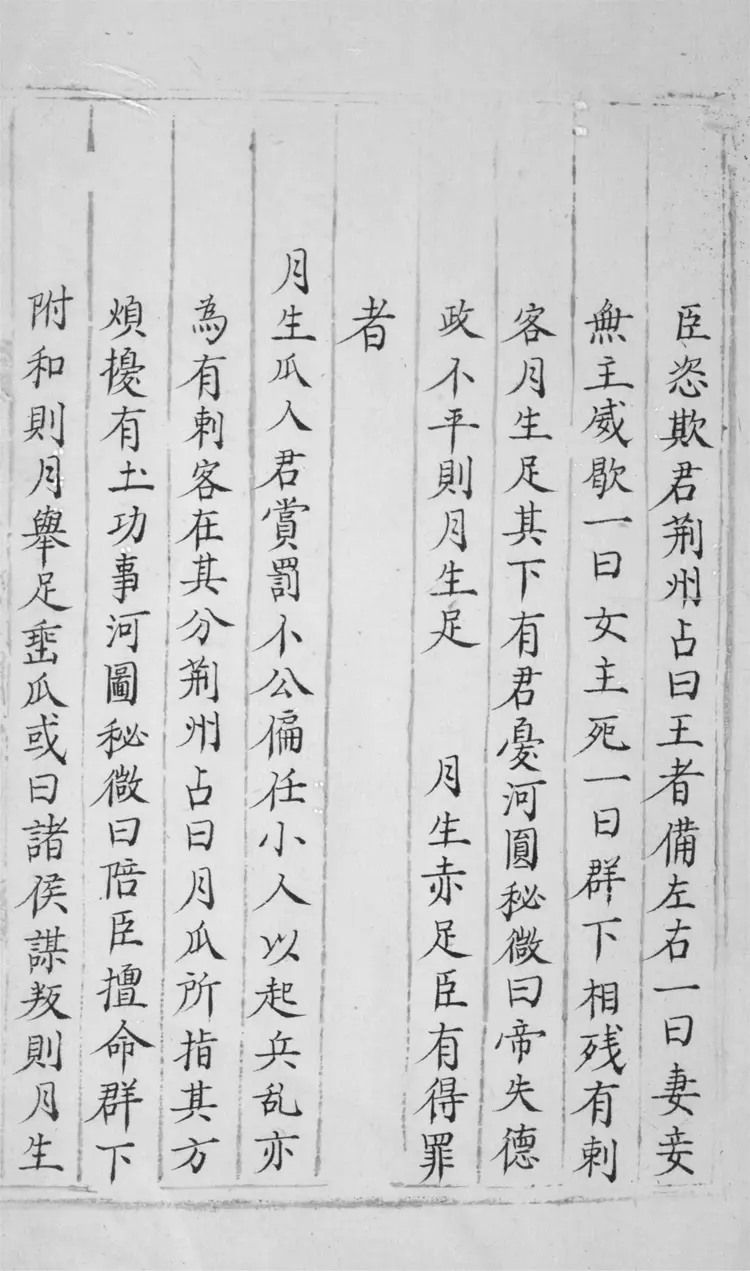 臣恣欺君荆州占曰王者備左右一曰妻妾
無主威歇一曰女主死一曰群下相残有刺
客月生足其下有君憂河圓秘微曰帝失德
政不平則月生足　月生赤足臣有得罪
者
月生瓜人君賞罰不公偏任小人以起兵乱亦
為有刺客在其分荆州占曰月瓜所指其方
煩擾有土功事河圖秘微曰陪臣擅命群下
附和則月舉足垂瓜或曰諸侯謀叛則月生